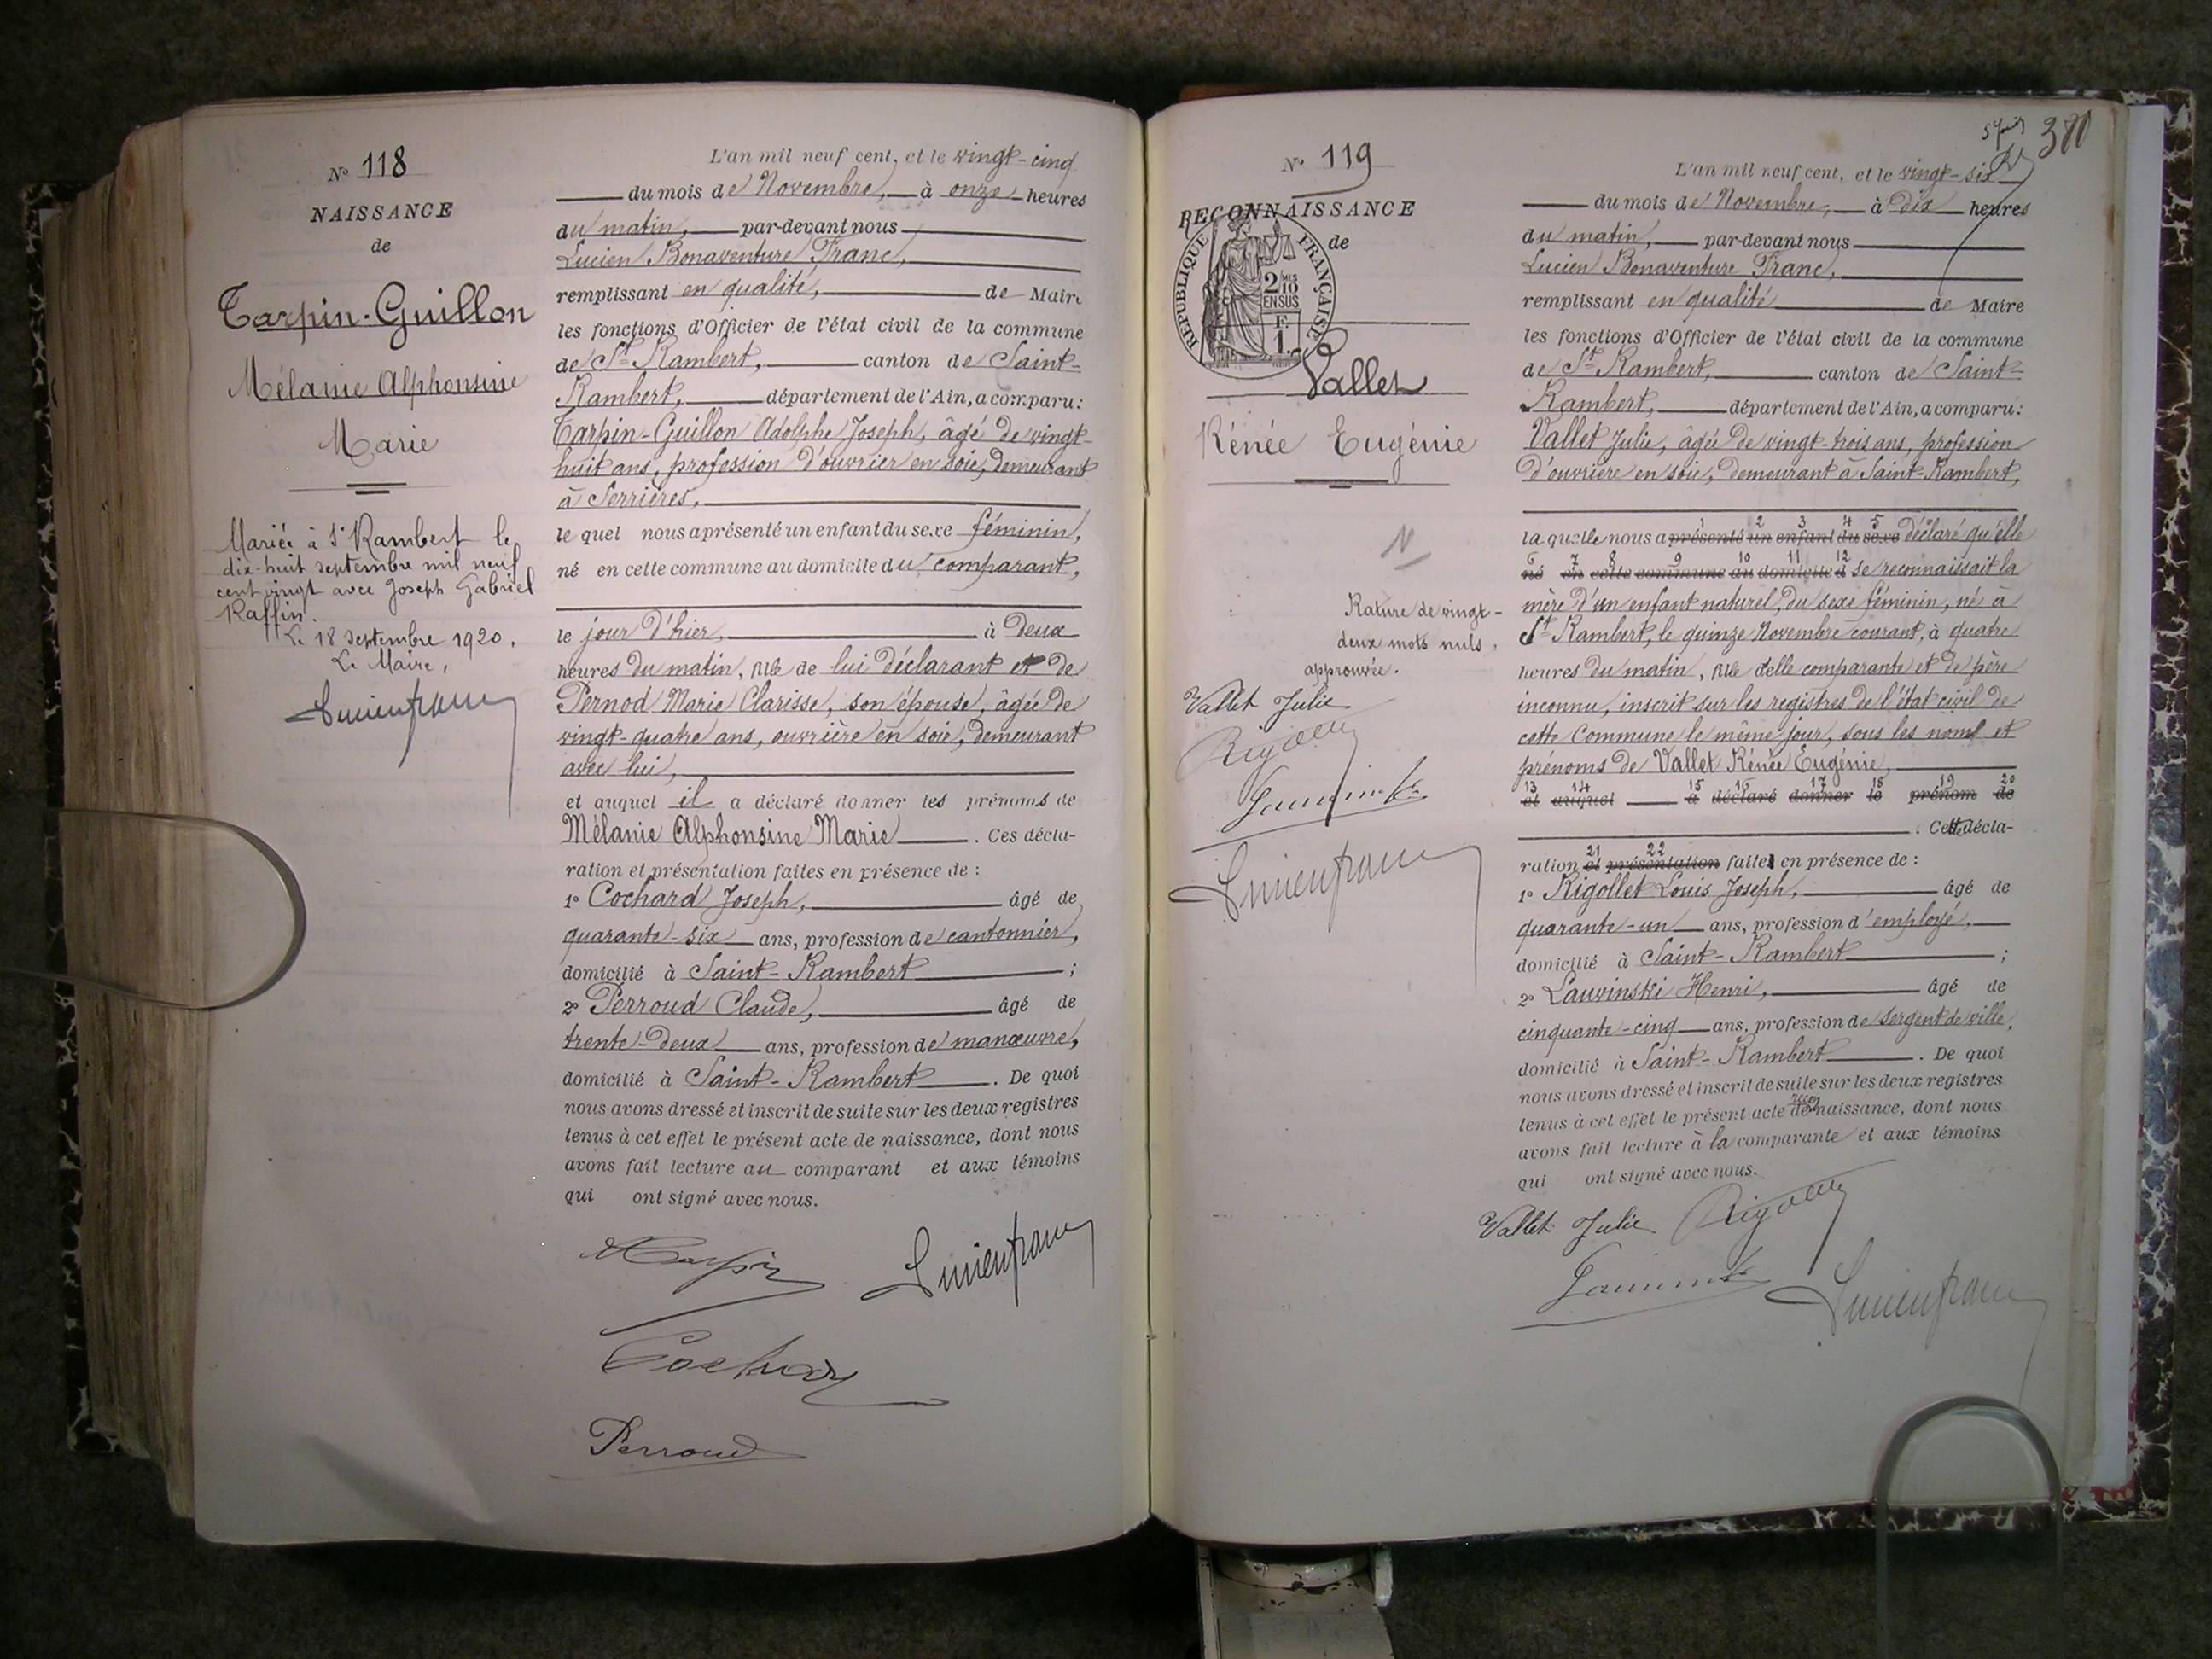 N° 118
NAISSANCE
de
Tarpin-Guillon
Mélanie Alphonsine
Marie
Mariée à St Rambert le
dix-huit septembre mil neuf
cent vingt avec Joseph Gabriel
Raffin.
Le 18 septembre 1920.
Le Maire,
L'an mil neuf cent, et le vingt-cinq
du mois de Novembre, à onze heures
du matin, par-devant nous
Lucien Bonaventure Franc,
remplissant en qualité, de Maire
les fonctions d'Officier de l'état civil de la commune
de St Rambert, canton de Saint-
Rambert, département de l'Ain, a comparu:
Tarpin-Guillon Adolphe Joseph, âgé de vingt-
huit ans, profession d'ouvrier en soie, demeurant
à Serrières,
le quel nous a présenté un enfant du sexe féminin,
né en cette commune au domicile du comparant,
le jour d'hier, à deux
heures du matin, fille de lui déclarant et de
Pernod Marie Clarisse, son épouse, âgée de
vingt-quatre ans, ouvrière en soie, demeurant
avec lui,
et auquel il a déclaré donner les prénoms de
Mélanie Alphonsine Marie. Ces décla-
ration et présentation faites en présence de :
1° Cochard Joseph, âgé de
quarante-six ans, profession de cantonnier,
domicilié à Saint-Rambert ;
2° Perroud Claude, âgé de
trente-deux ans, profession de manœuvre,
domicilié à Saint-Rambert. De quoi
nous avons dressé et inscrit de suite sur les deux registres
tenus à cet effet le présent acte de naissance, dont nous
avons fait lecture au comparant et aux témoins
qui ont signé avec nous.
Perroud
N° 119
RECONNAISSANCE
de
REPUBLIQUE FRANÇAISE
2/10 EN SUS
F.
1.
Vallet
Rénée Eugénie
N
Rature de vingt-
deux mots nuls,
approuvée.
Vallet Julie
380
L'an mil neuf cent, et le vingt-six
du mois de Novembre, à dix heures
du matin, par-devant nous
Lucien Bonaventure Franc,
remplissant en qualité de Maire
les fonctions d'Officier de l'état civil de la commune
de St Rambert, canton de Saint-
Rambert, département de l'Ain, a comparu:
Vallet Julie, âgée de vingt-trois ans, profession
d'ouvrière en soie, demeurant à Saint-Rambert,
2 3 4 5
la quelle nous a présenté un enfant du sexe déclaré qu'elle
6 7 8 9 10 11 12
né en cette commune au domicile d se reconnaissait la
mère d'un enfant naturel, du sexe féminin, né à
St Rambert, le quinze Novembre courant, à quatre
heures du matin, fille d'elle comparante et de père
inconnu, inscrit sur les registres de l'état civil de
cette Commune le même jour, sous les noms et
prénoms de Vallet Rénée Eugénie,
13 14 15 16 17 18 19 20
et auquel a déclaré donner le prénom de
. Cette décla-
21 22
ration et présentation faite en présence de :
1° Rigollet Louis Joseph, âgé de
quarante-un ans, profession d'employé,
domicilié à Saint-Rambert ;
2° Lauvinski Henri, âgé de
cinquante-cinq ans, profession de sergent de ville,
domicilié à Saint-Rambert. De quoi
nous avons dressé et inscrit de suite sur les deux registres
tenus à cet effet le présent acte de recon naissance, dont nous
avons fait lecture à la comparante et aux témoins
qui ont signé avec nous.
Vallet Julie